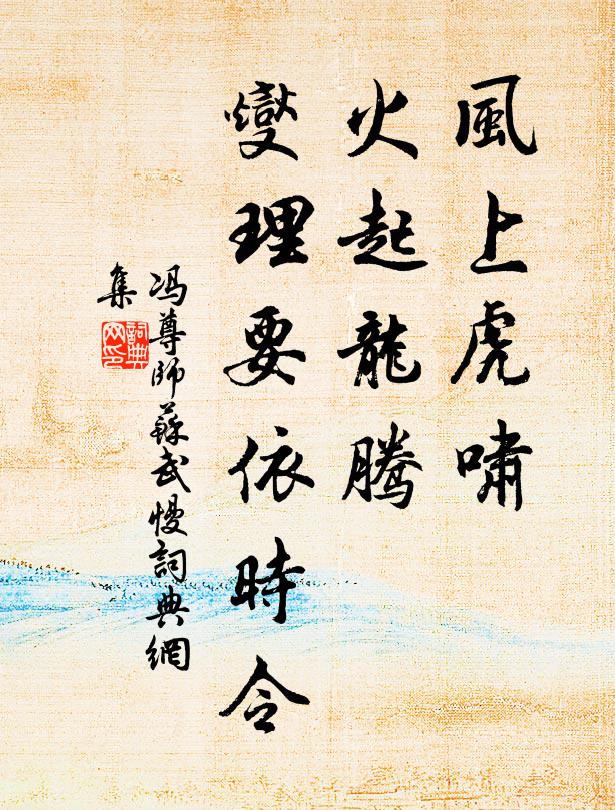 風上虎嘯
火起龍騰
燮理要依時令
冯尊師蘇武慢詞典網
集
詞典
网印